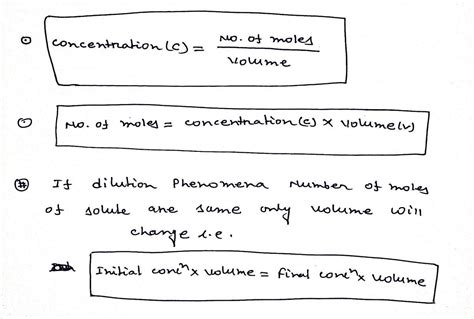 concentration(c) = No. of moles
volume
No. of moles = concentration(c) × volume(v)
If dilution Phenomena Number of moles
of solute are same only volume will
change i.e.
Initial concⁿ × volume = final concⁿ × volume